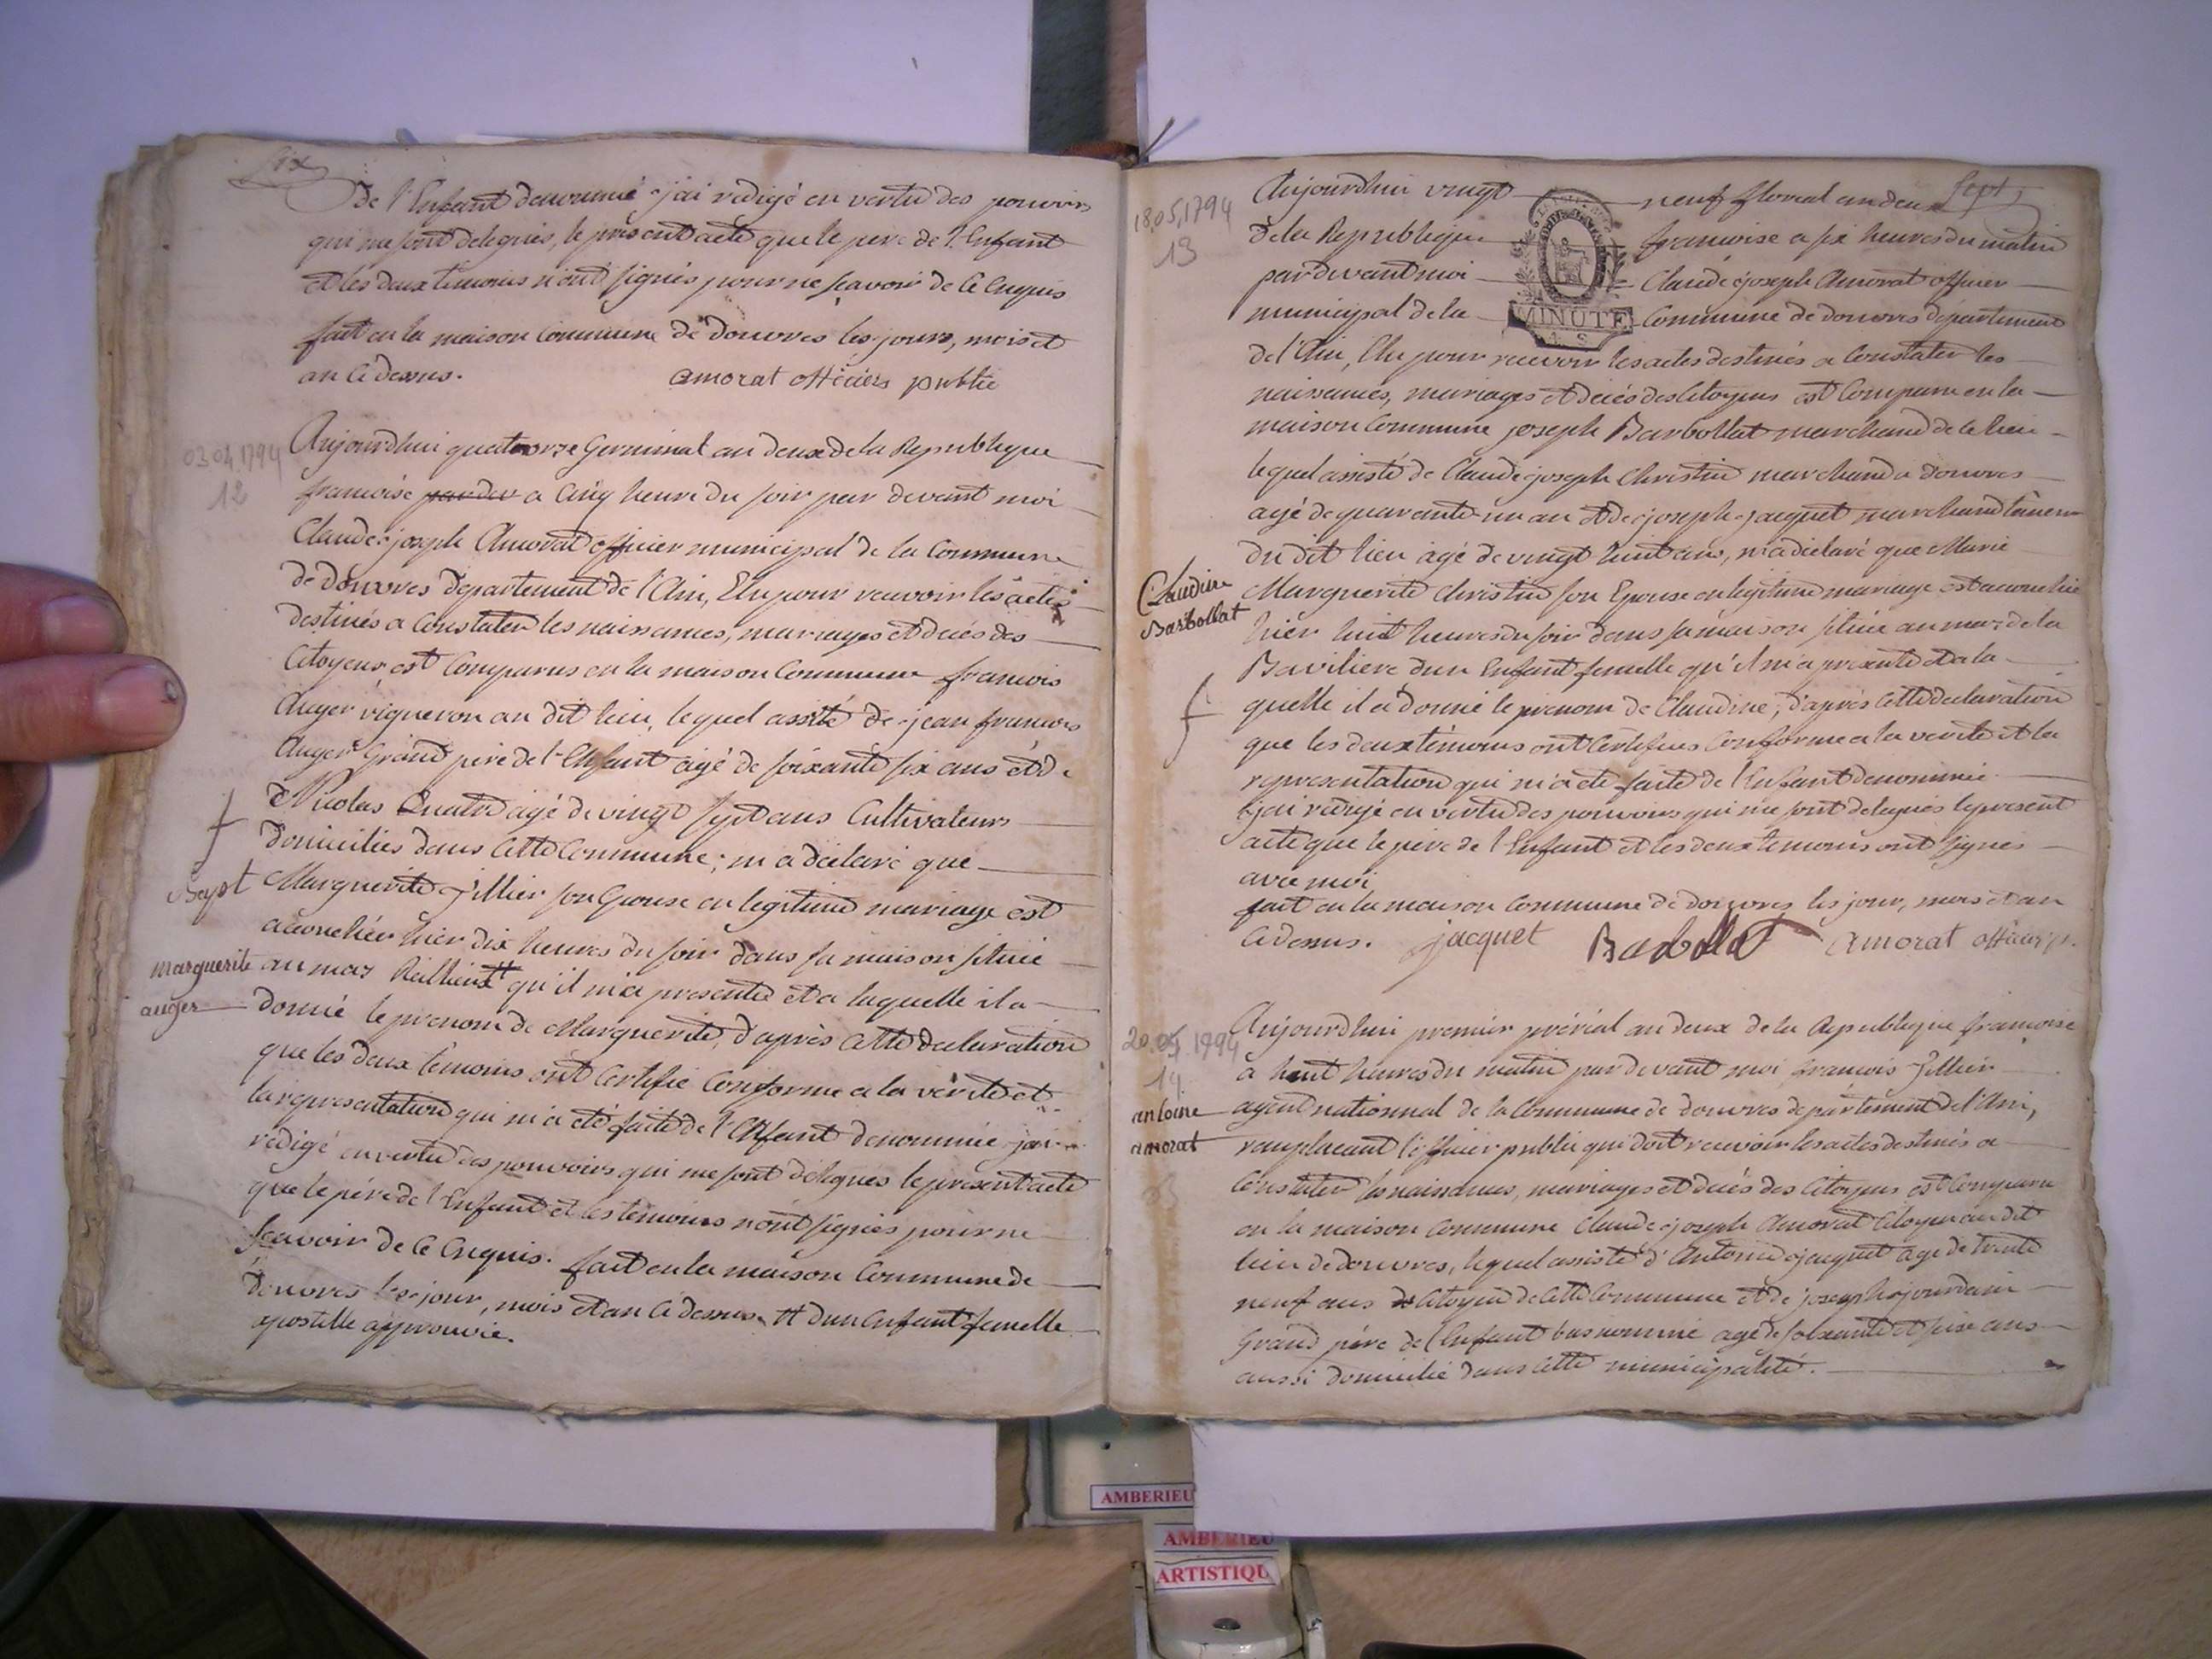 Six
De l'Enfant denommé j'ai redigé en vertu des pouvoirs
qui me sont delegués, le present acte que le pere de l'Enfant
et les deux temoins n'ont signés pour ne sçavoir de ce Enquis
fait en la maison Commune de douvres les jours, mois et
an Cidessus. amorat officiers publie
03.04.1794
12
Aujourdhui quatorze Germinal an deux de la Republique
francoise par dev a Cinq heure du soir par devant moi
Claude joseph Amorat officier municipal de la Commune
de douvres departement de l'Ain, Elu pour recevoir les actes
destinés a Constater les naissances, mariages et decés des
Citoyens, est Comparus en la maison Commune francois
Auger vigneron au dit lieu, lequel assité de jean francois
Auger Grand pere de l'Enfant agé de soixante six ans et de
Nicolas agé de vingt sept ans Cultivateurs
domiciliés dans Cette Commune; m'a déclaré que
Sept
Marguerite jillier son Epouse en legitime mariage est
accouchée hier dix heures du soir dans sa maison située
marguerite
auger
au mas # qu'il m'a presenté et a laquelle il a
donné le prenom de Marguerite, d'après Cette declaration
que les deux temoins ont Certifié Conforme a la vérité et
la representation qui m'a été faite de l'Enfant denommée j'ai
redigé en vertu des pouvoirs qui me sont delegués le present acte
que le pére de l'Enfant et les temoins n'ont signés pour ne
scavoir de Ce Enquis. fait en la maison Commune de
douvres les jour, mois et an Cidessus. # d'un Enfant femelle
apostille approuvée.
Sept
18.05.1794
13
Aujourdhui vingt neuf floreal an deux
de la Republique francoise a six heures du matin
par devant moi Claude joseph Amorat officier
municipal de la Commune de douvres departement
MINUTE
de l'Ain, Elu pour recevoir les actes destinés a Constater les
naissances, mariages et décés des Citoyens est Comparu en la
maison Commune joseph Barbollat marchand de ce lieu
lequel assisté de Claude joseph Christin marchand a douvres
agé de quarante un an et de joseph jacquet marchand
du dit lieu agé de vingt huit ans, m'a déclaré que Marie
Claudine
Barbollat
Marguerite Christin son Epouse en legitime mariage est accouchée
hier huit heures du soir dans sa maison située au mas de la
Baviliere d'un Enfant femelle qu'il m'a presenté et a la
quelle il a donné le prenom de Claudine, d'après Cette declaration
que les deux témoins ont Certifiés Conforme a la verité et la
representation qui m'a été faite de l'Enfant denommée
j'ai redigé en vertu des pouvoirs qui me sont delegués le present
acte que le pére de l'Enfant et les deux temoins ont signés
avec moi
fait en la maison Commune de douvres les jour, mois et an
Cidessus. jacquet Barbollat amorat officier p.
20.05.1794
14
Aujourdhui premier prérial an deux de la Republique francoise
à huit heures du matin par devant moi francois jillier
antoine
amorat
agent nationnal de la Commune de douvres departement de l'Ain,
remplacant l'officier public qui doit recevoir les actes destinés a
Constater les naissances, mariages et décés des Citoyens est Comparu
en la maison Commune Claude joseph Amorat Citoyen au dit
lieu de douvres, lequel assisté d'Antoine jacquet agé de trente
neuf ans Citoyen de Cette Commune et de joseph jourdain
Grand pére de l'Enfant bas nommé agé de soixante et six ans
aussi domicilié dans Cette municipalité.
AMBERIEU
AMBERIEU
ARTISTIQU